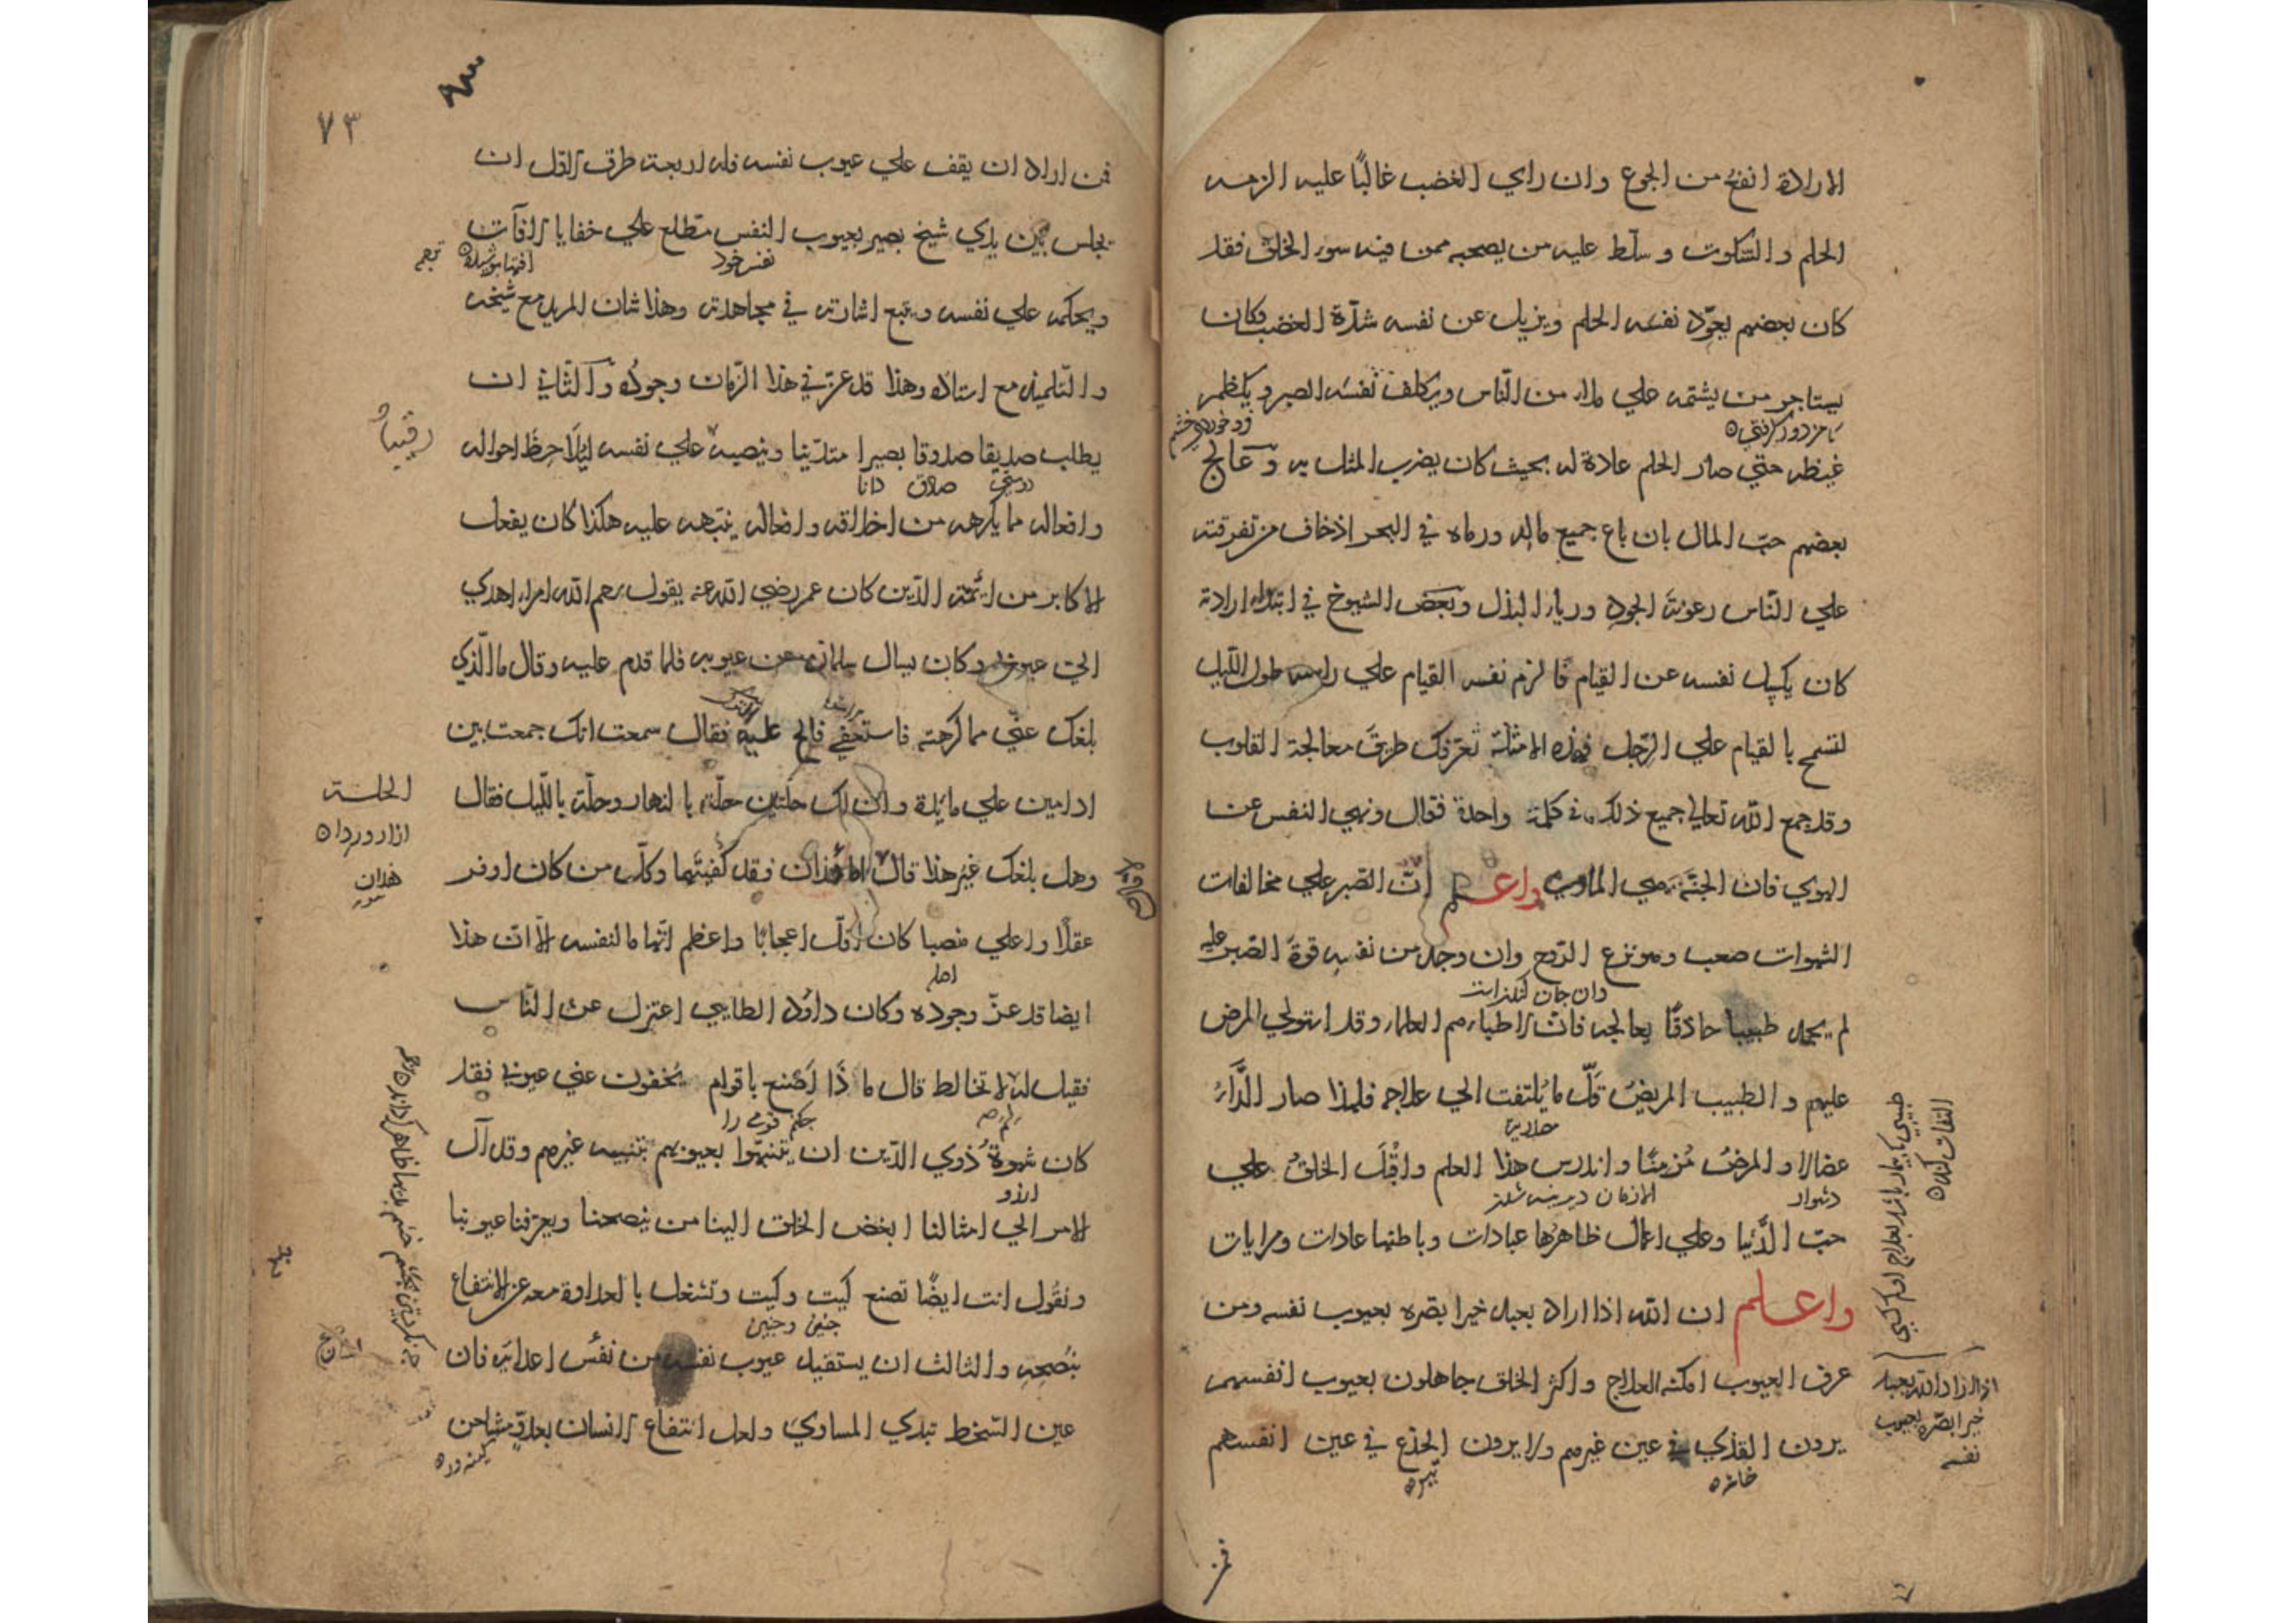 الارادة انفع من الجوع وان راي الغضب غالبًا عليه الزمه
الحلم والسّكوت وسلّط عليه من يصحبه ممن فيه سوء الخلق فقد
كان بعضهم يعوّد نفسَه الحلم ويزيل عن نفسه شدّة الغضب وكان
يستاجر من يشتمه علي ملاء من النّاس ويكلف نفسَه الصبر ويكظم
غيظه حتي صار الحلم عادة له بحيث كان يضرب المثل به وعالج
بعضهم حبّ المال بان باع جميع ماله ورماه في البحر اذ خاف من تفرقته
علي النّاس رعونةَ الجود ورياء البذل وبعض الشيوخ في ابتداء ارادته
كان يكسل نفسه عن القيام فالزم نفسه القيام علي راسه طول اللّيل
لتسمح بالقيام علي الرّجل فهذه الامثلة تعرّفك طريقَ معالجة القلوب
وقد جمع الله تعالي جميع ذلك في كلمة واحدة فقال ونهي النفس عن
الهوي فان الجنّة هي الماوي واعلم انّ الصّبر علي مخالفات
الشهوات صعب وهو نزع الرّوح وان وجد من نفسه قوة الصّبر عليه
دان جان كندنست
لم يجد طبيبا حاذقًا يعالجه فانّ الاطباء هم العلماء وقد استولي المرض
عليهم والطبيب المريضُ قلّ ما يُلتفت الي علاجه فلهذا صار الدَّاءُ
عضالا والمرضُ مُزمنًا واندرس هذا العلم واقبل الخلقُ علي
دشوار
حبّ الدُّنيا وعلي اعمال ظاهرُها عبادات وباطنها عادات ومرايات
واعلم ان الله اذا اراد بعبد خيرا بصّره بعيوب نفسه ومن
عرف العيوب امكنه العلاج واكثر الخلق جاهلون بعيوب انفسهم
يرون القذي في عين غيرهم ولا يرون الجذع في عين انفسهم
اذا اراد الله بعبد
خيرا بصّره بعيوب
نفسه
فمن
٧٣
فمن اراد ان يقف علي عيوب نفسه فله اربعة طرق الاول ان
يجلس بين يدي شيخ بصير بعيوب النفس مطّلع علي خفايا الآفات
نفس خود
ويحكمه علي نفسه ويتبع اشارته في مجاهدته وهذا شان المريد مع شيخه
والتّلميذ مع استاذه وهذا قد عزّ في هذا الزّمان وجودُه والثّاني ان
يطلب صديقا صدوقا بصيرا متديّنا وينصبه علي نفسه ليُلاحِظَ احواله
دوستي صادق دانا
وافعاله مما يكرهه من اخلاقه وافعاله ينبّهه عليه هكذا كان يفعل
الاكابر من ائمّة الدّين كان عمر رضي الله عنه يقول رحم الله امراء اهدي
الي عيوبي وكان يسال سلمان عن عيوبه فلما قدم عليه وقال ما الّذي
بلغك عنّي مما كرهته فاستعفي فالح عليه فقال سمعت انك جمعت بين
ادامين علي مائدة وان لك حلّتين حلّة بالنهار وحلّة باللّيل فقال
وهل بلغك غير هذا قال لا امّا هذان فقد كُفيتَهما وكلّ من كان اوفر
عقلًا واعلي منصبا كان اقلّ اعجابًا واعظم اتّهاما لنفسه الّا انّ هذا
ايضا قد عزّ وجوده وكان داؤد الطايي اعتزل عن النّاس
فقيل له لا تخالط قال ما ذا اَصنع باقوام يُخفون عنّي عيوبي فقد
چكنم قومي را
كان شهوةُ ذوي الدّين ان يتنبّهوا بعيوبهم بتنبيه غيرهم وقد آل
ارزو
الامر الي امثالنا ابغض الخلق الينا من ينصحنا ويعرّفنا عيوبنا
ونقُول انت ايضًا تصنع كيت وكيت وتشغل بالعداوة معه عن الانتفاع
چنين وچنين
بنُصحِه والثالث ان يستفيد عيوب نفسه من نفس اعدائه فان
عين السّخط تبدي المساوي ولعل انتفاع الانسان بعدوّ مشاحن
كينه ور
الحلة
ازار وردا
هذان